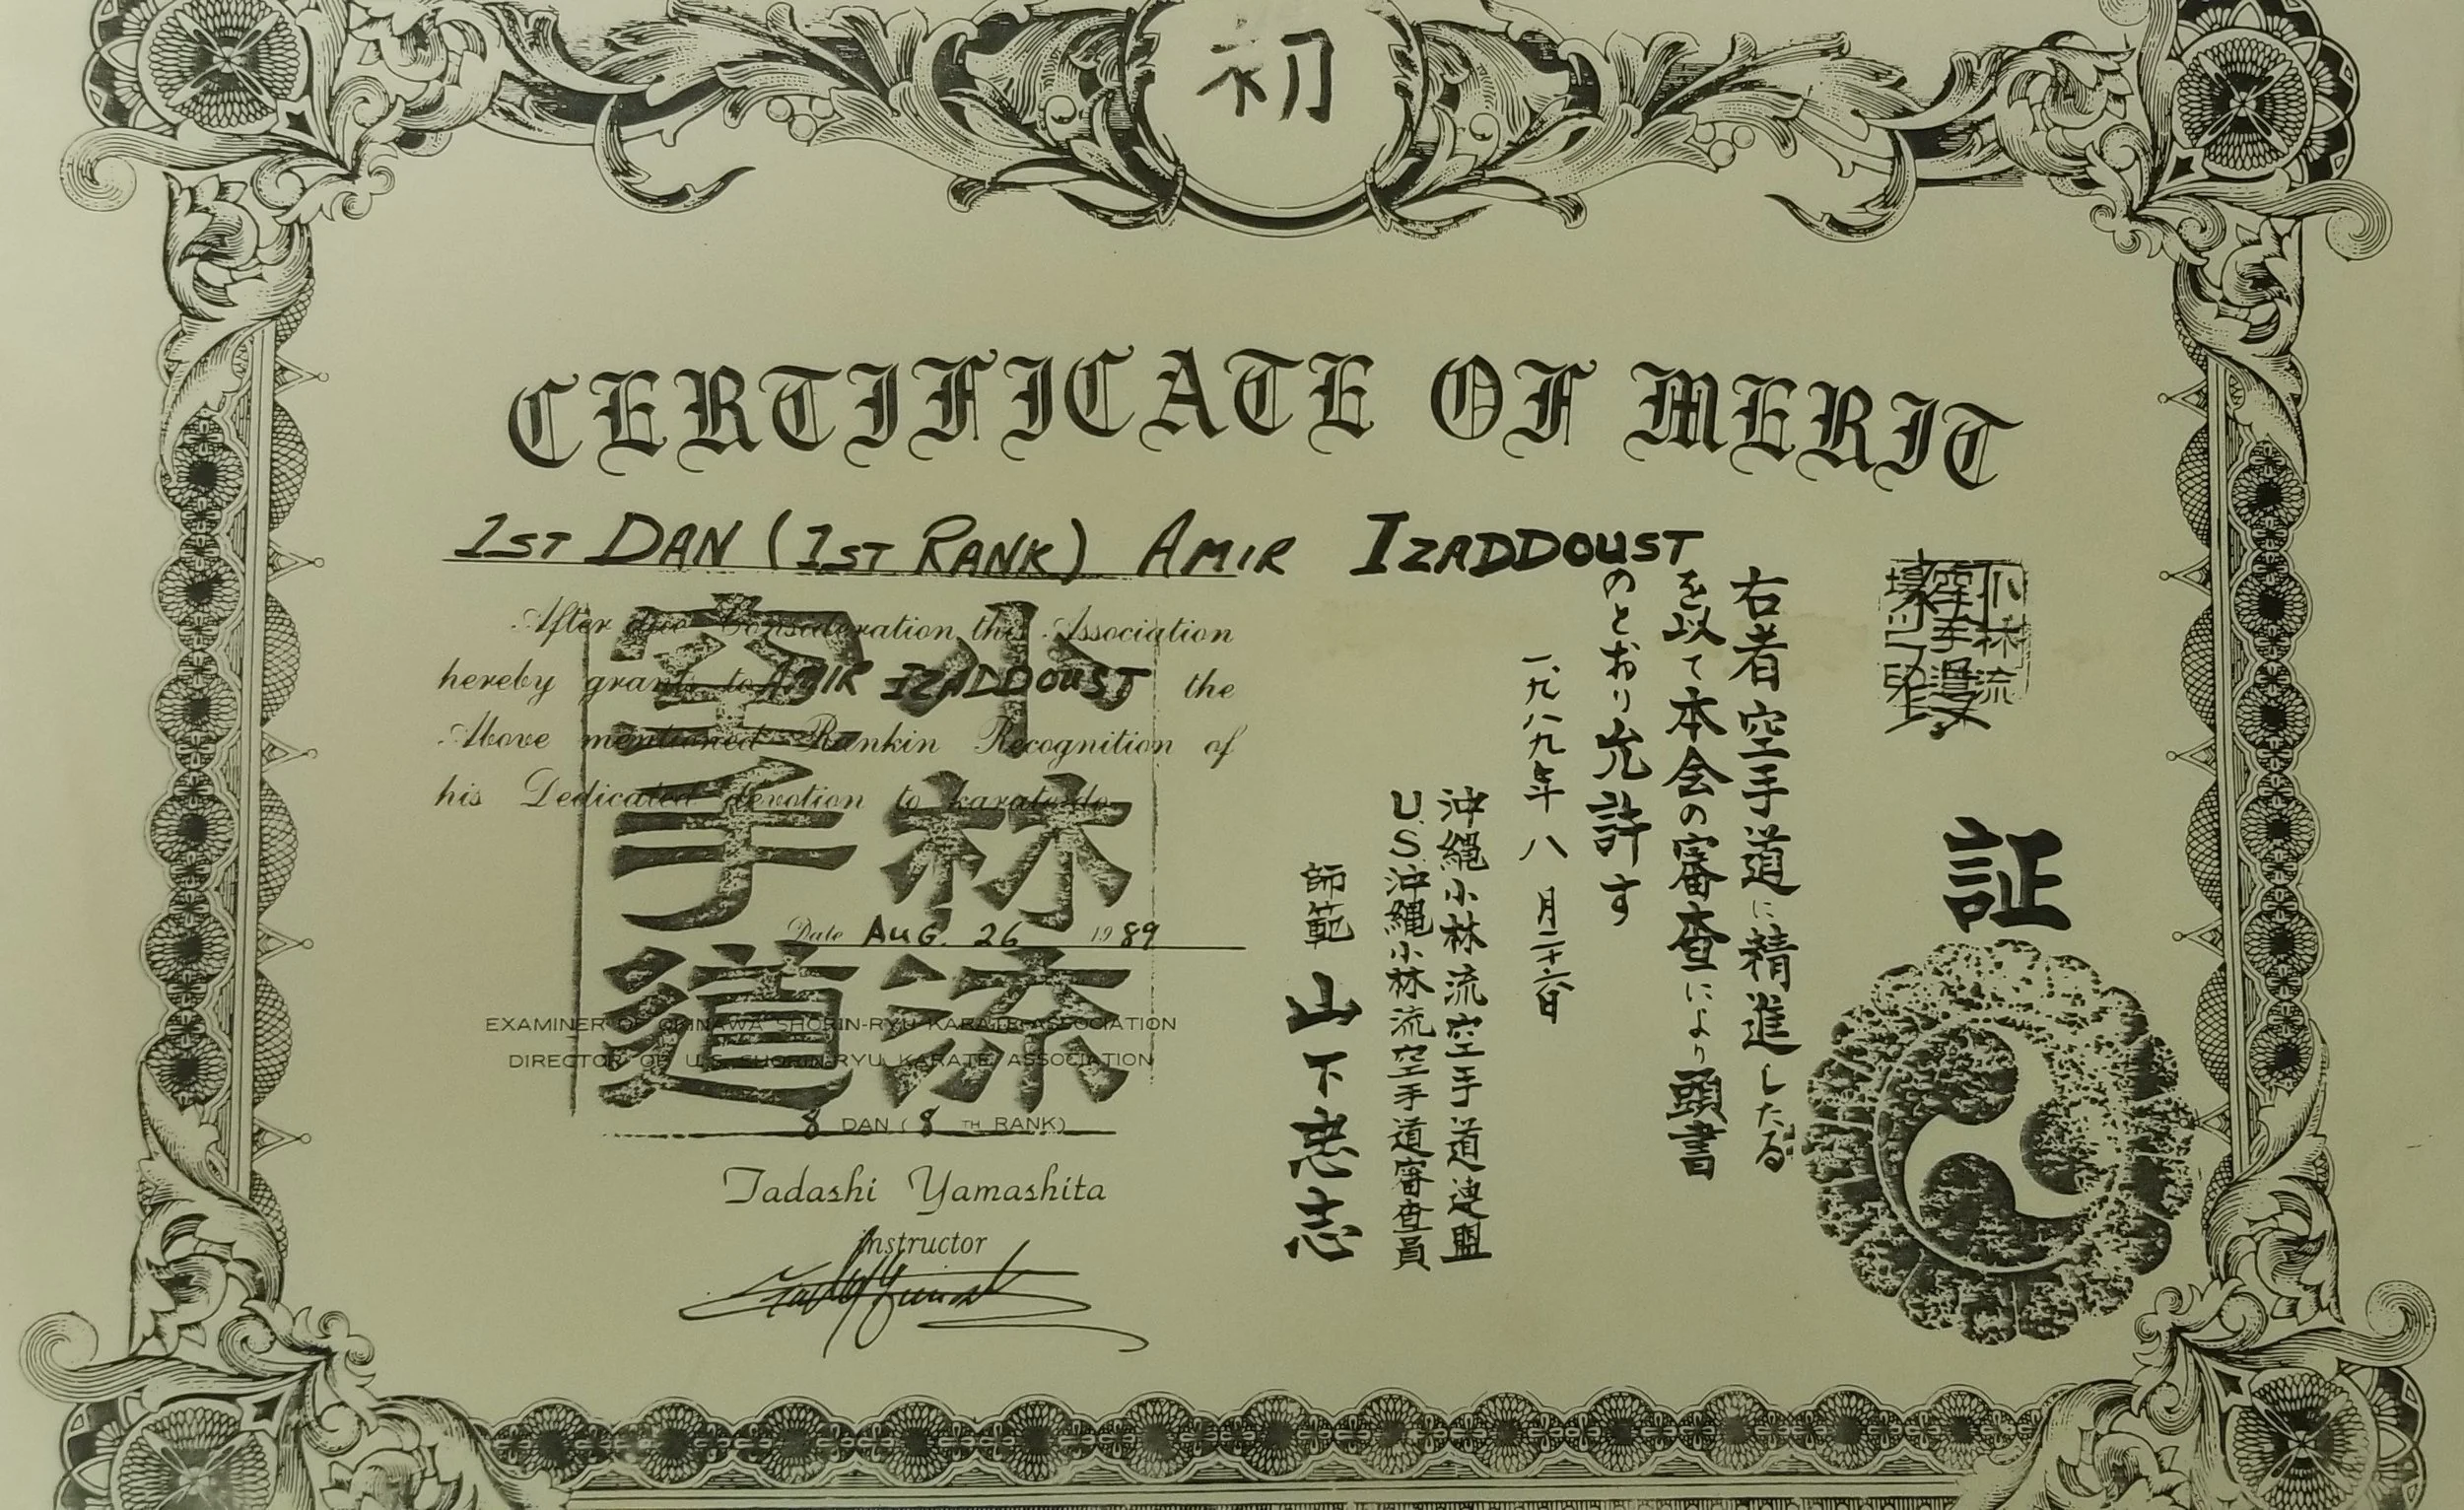 初
CERTIFICATE OF MERIT
1ST DAN (1ST RANK) AMIR IZADDOUST
After due Consideration this Association
hereby grants to AMIR IZADDOUST the
Above mentioned Rankin Recognition of
his Dedicated devotion to karate do
Date AUG. 26 1989
EXAMINER OF OKINAWA SHORIN-RYU KARATE ASSOCIATION
DIRECTOR OF U.S. SHORIN-RYU KARATE ASSOCIATION
8 DAN (8 TH RANK)
Tadashi Yamashita
Instructor
小林流
空手道
証
右者空手道に精進したる
を以て本会の審査により頭書
のとおり允許す
一九八九年八月二十六日
沖縄小林流空手道連盟
U.S.沖縄小林流空手道審査員
師範 山下忠志